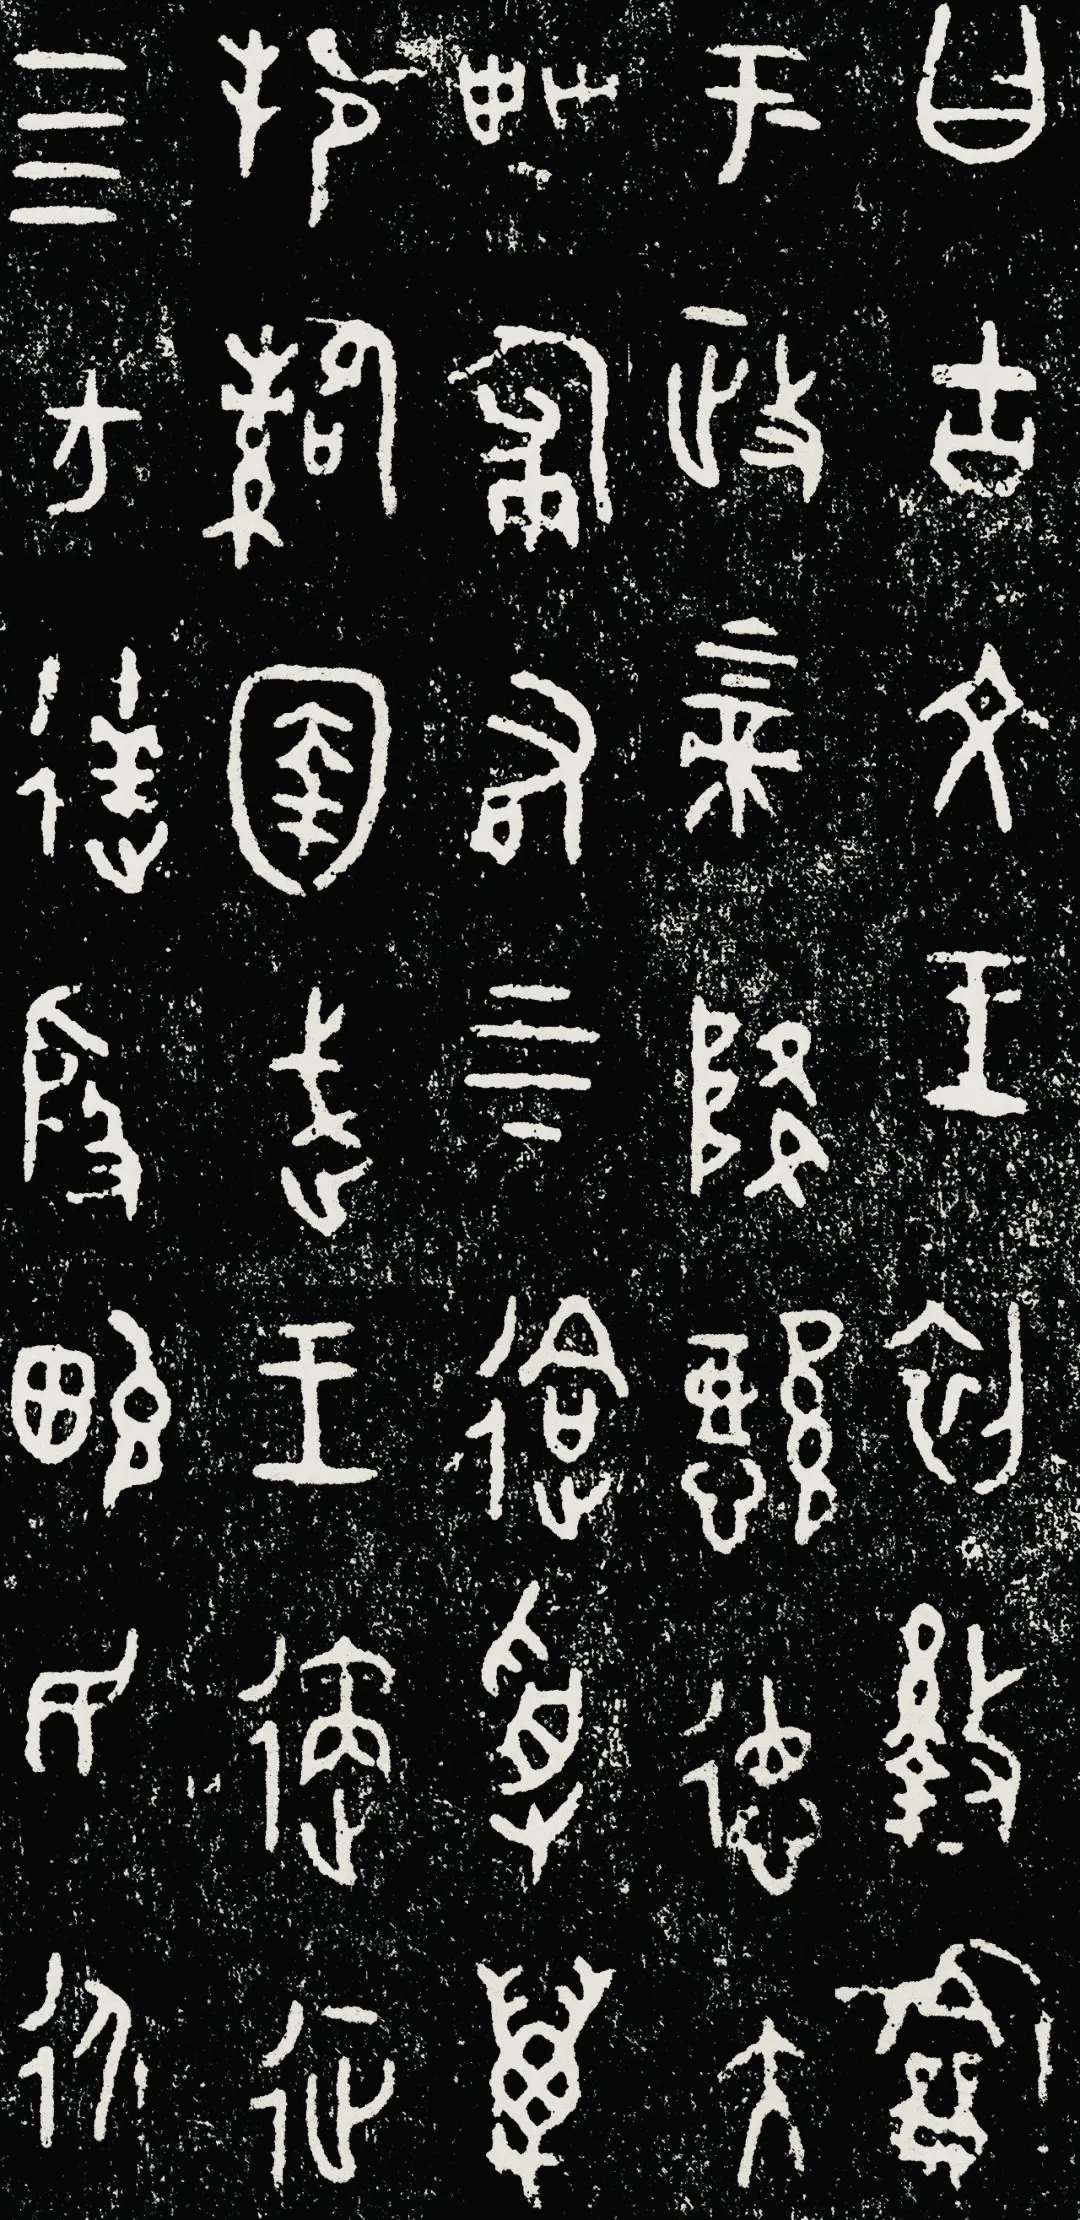 曰古文王初盭龢
于政上帝降懿德大
甹匍有上下迨受萬
邦圉武王遹征
四方達殷畯民永